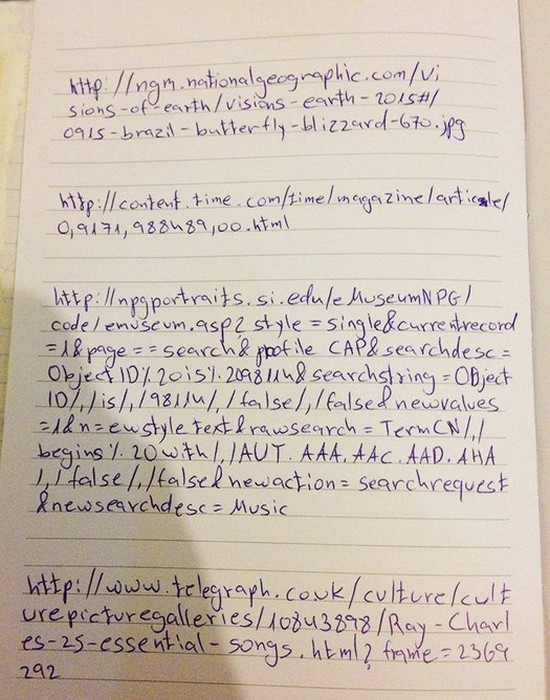 http://ngm.nationalgeographic.com/vi
sions-of-earth/visions-earth-2015#/
0915-brazil-butterfly-blizzard-670.jpg
http://content.time.com/time/magazine/article/
0,9171,988489,00.html
http://npgportraits.si.edu/eMuseumNPG/
code/emuseum.asp? style=single&currentrecord
=1&page==search& profile CAP& searchdesc=
Object ID%20is%2098114& searchstring=Object
ID/,/is/,/98114/,/false/,/false& newvalues
=1&n=ewstyle text&rawsearch=TermCN/,/
begins%20with/,/AUT.AAA.AAC.AAD.AHA
/,/false/,/false&newaction=searchrequest
&newsearchdesc=Music
http://www.telegraph.co.uk/culture/cult
urepicturegalleries/10843898/Ray-Charl
es-25-essential-songs.html? frame=2369
292